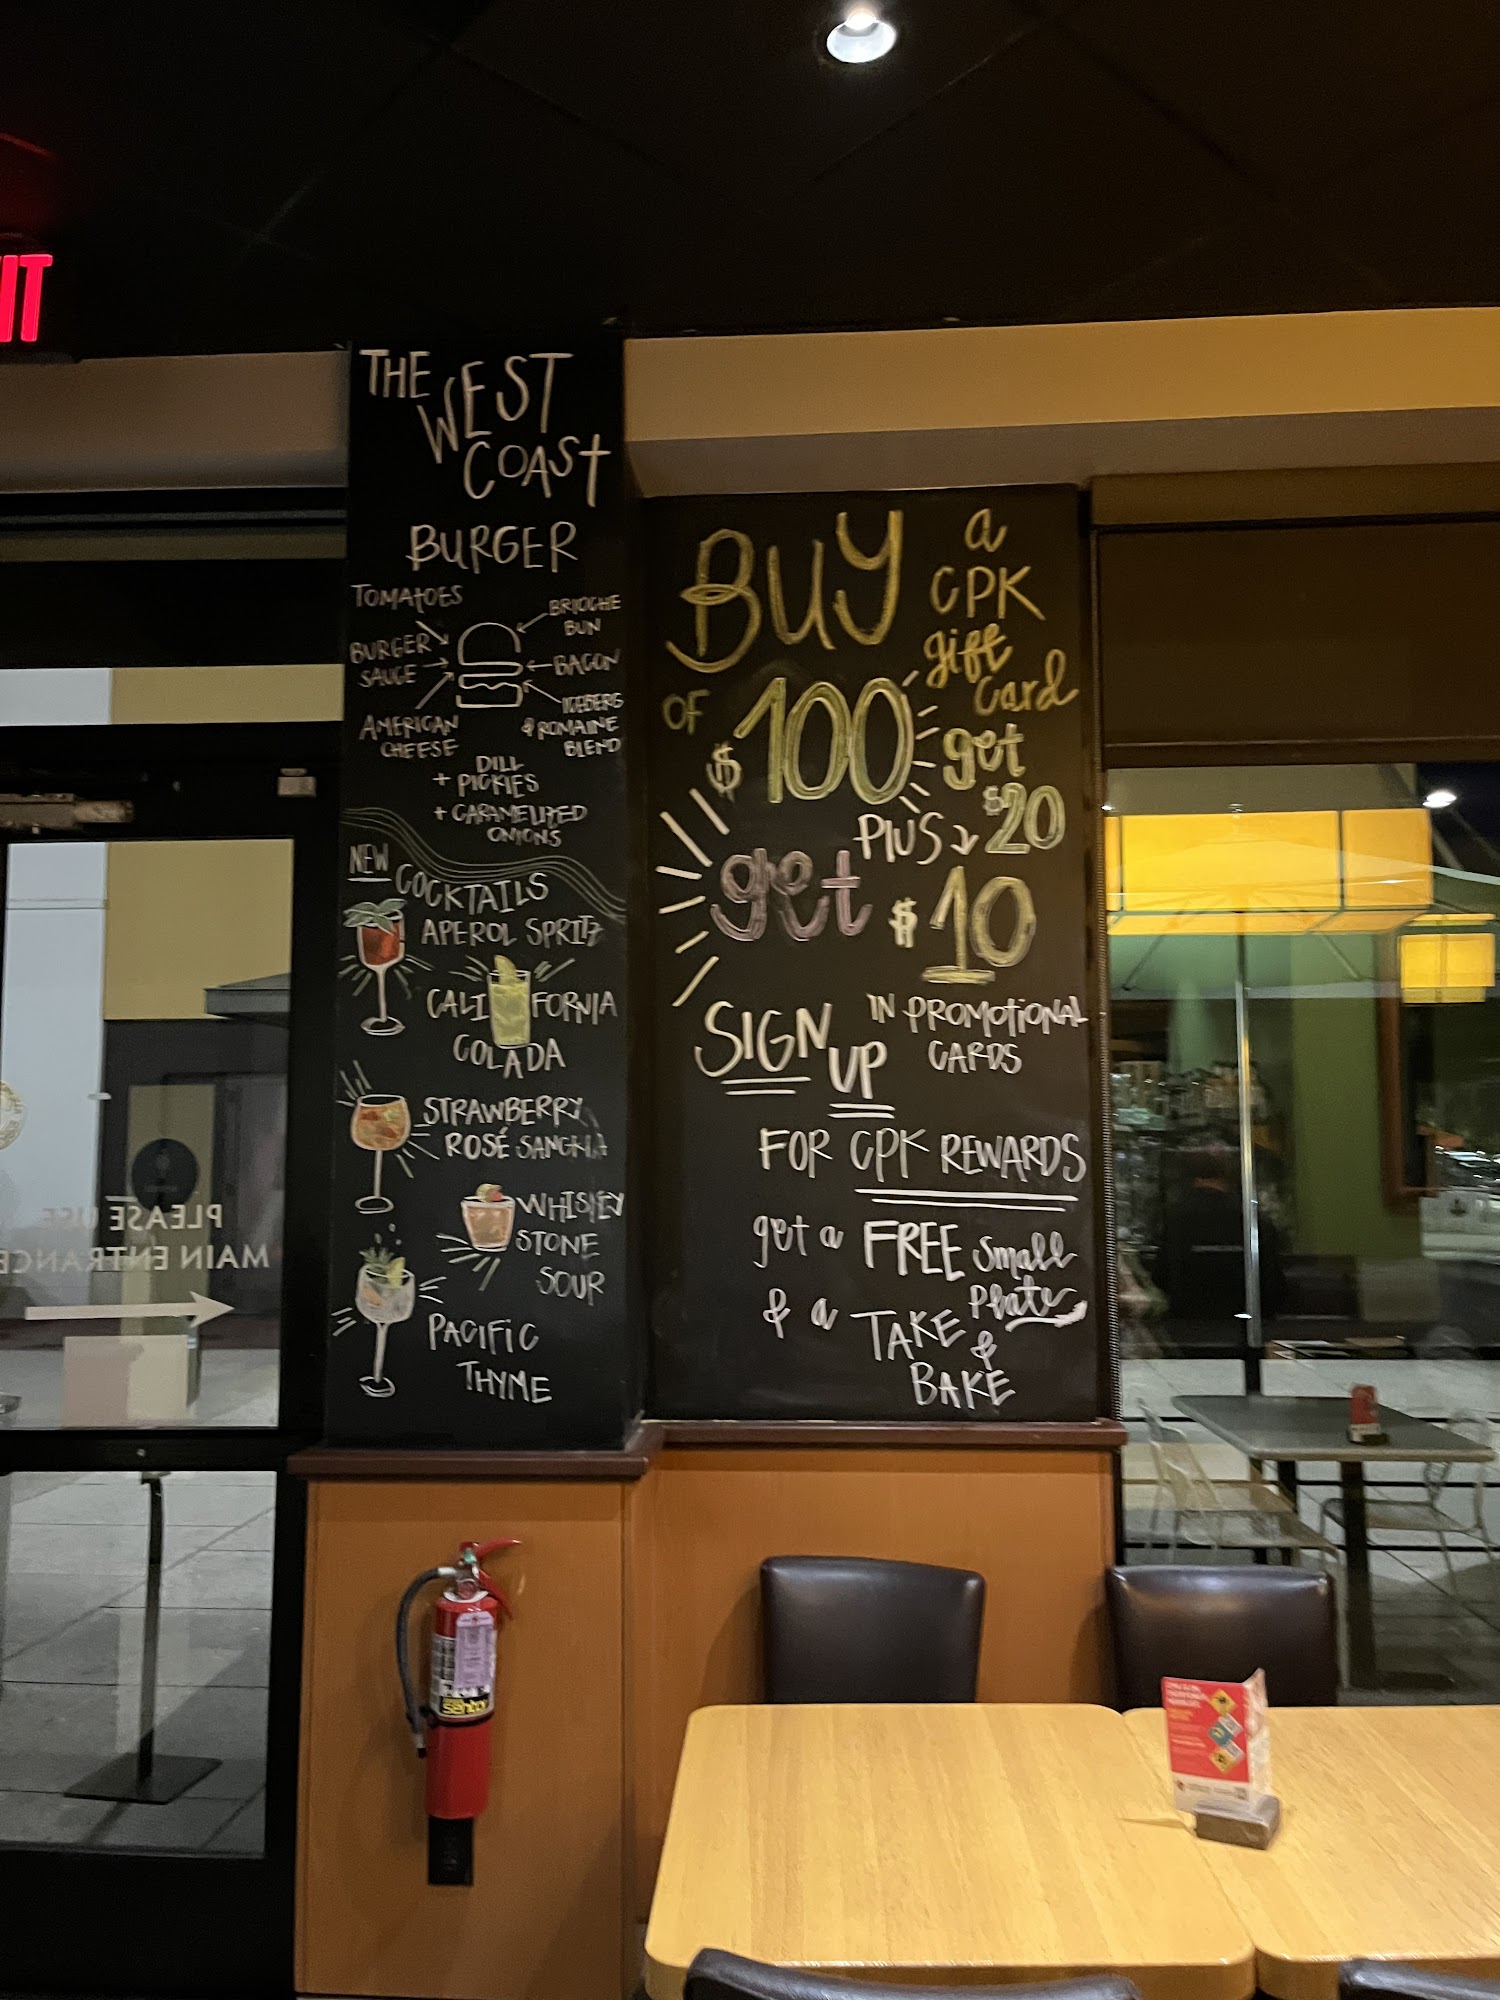 IT
THE
WEST
COAST
BURGER
TOMATOES
BRIOCHE
BUN
BURGER
SAUCE
BACON
AMERICAN
CHEESE
ICEBERG
& ROMAINE
BLEND
DILL
+ PICKLES
+ CARAMELIZED
ONIONS
NEW
COCKTAILS
APEROL SPRITZ
CALIFORNIA
COLADA
STRAWBERRY
ROSÉ SANGRIA
WHISKEY
STONE
SOUR
PACIFIC
THYME
BUY
a
CPK
gift
card
OF
$100
get
$20
PLUS
get $10
IN PROMOTIONAL
CARDS
SIGN
UP
FOR CPK REWARDS
get a FREE small
plate
& a TAKE &
BAKE
PLEASE USE
MAIN ENTRANCE
sentry